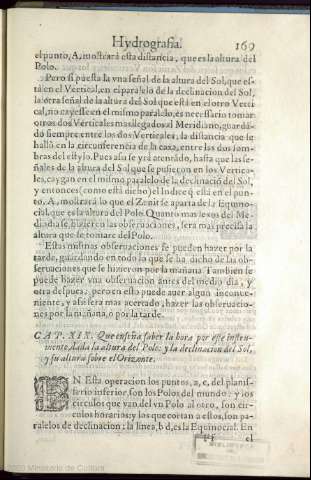 Hydrografia. 169
el punto, A, mostrará esta distancia, que es la altura del
Polo.
Pero si puesta la vna señal de la altura del Sol, que es-
tá en el Vertical, en el paralelo de la declinacion del Sol,
la otra señal de la altura del Sol que está en el otro Verti
cal, no cayesse en el mismo paralelo, es necessario tomar
otros dos Verticales mas llegados al Meridiano, guardã-
dó siempre entre los dos Verticales, la distancia que se
halló en la circunferencia de la caxa, entre las dos som-
bras del estylo. Pues assi se yrá atentãdo, hasta que las se-
ñales de la altura del Sol que se pusieron en los Vertica-
les, caygan en el mismo paralelo de la declinaciõ del Sol,
y entonces (como está dicho) el Indice q̃ está en el pun-
to, A, mostrará lo que el Zenit se aparta de la Equino-
cial, que es la altura del Polo. Quanto mas lexos del Me-
diodia se hizieren las obseruaciones, sera mas precissa la
altura que se tomare del Polo.
Estas mismas obseruaciones se pueden hazer por la
tarde, guardando en todo lo que se ha dicho de las ob-
seruaciones que se hazieron por la mañana. Tambien se
puede hazer vna obseruacion antes del medio dia, y
otra despues, pero en esto puede auer algun inconue-
niente, y assi sera mas acertado, hazer las obseruacio-
nes por la mañana, ó por la tarde.
CAP. XIX. Que enseña saber la hora por este instru-
mento, dada la altura del Polo: y la declinacion del Sol,
y su altura sobre el Orizonte.
EN Esta operacion los puntos, a, c, del planis-
ferio inferior, son los Polos del mundo: y los
circulos que van del vn Polo al otro, son cir-
culos horarios: y los que cortan a estos, son pa-
ralelos de declinacion: la linea, b d, es la Equinocial. En
el
BIBLIOTECA
Ministerio de Cultura